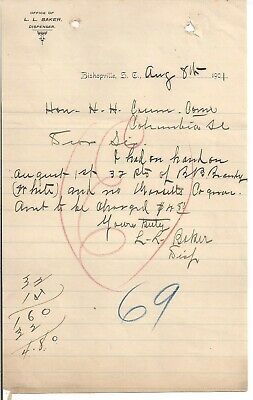 OFFICE OF
L. L. BAKER,
DISPENSER.
Bishopville, S. C., Aug 8th 1901.
Hon. H. H. Com
Columbia SC
Dear Sir.
I had on hand on
August 1st 32 Pts of BB Brandy
(White) and no
Amt to be charged
Yours truly
L. L. Baker
Disp
32
15
160
32
4.80
69